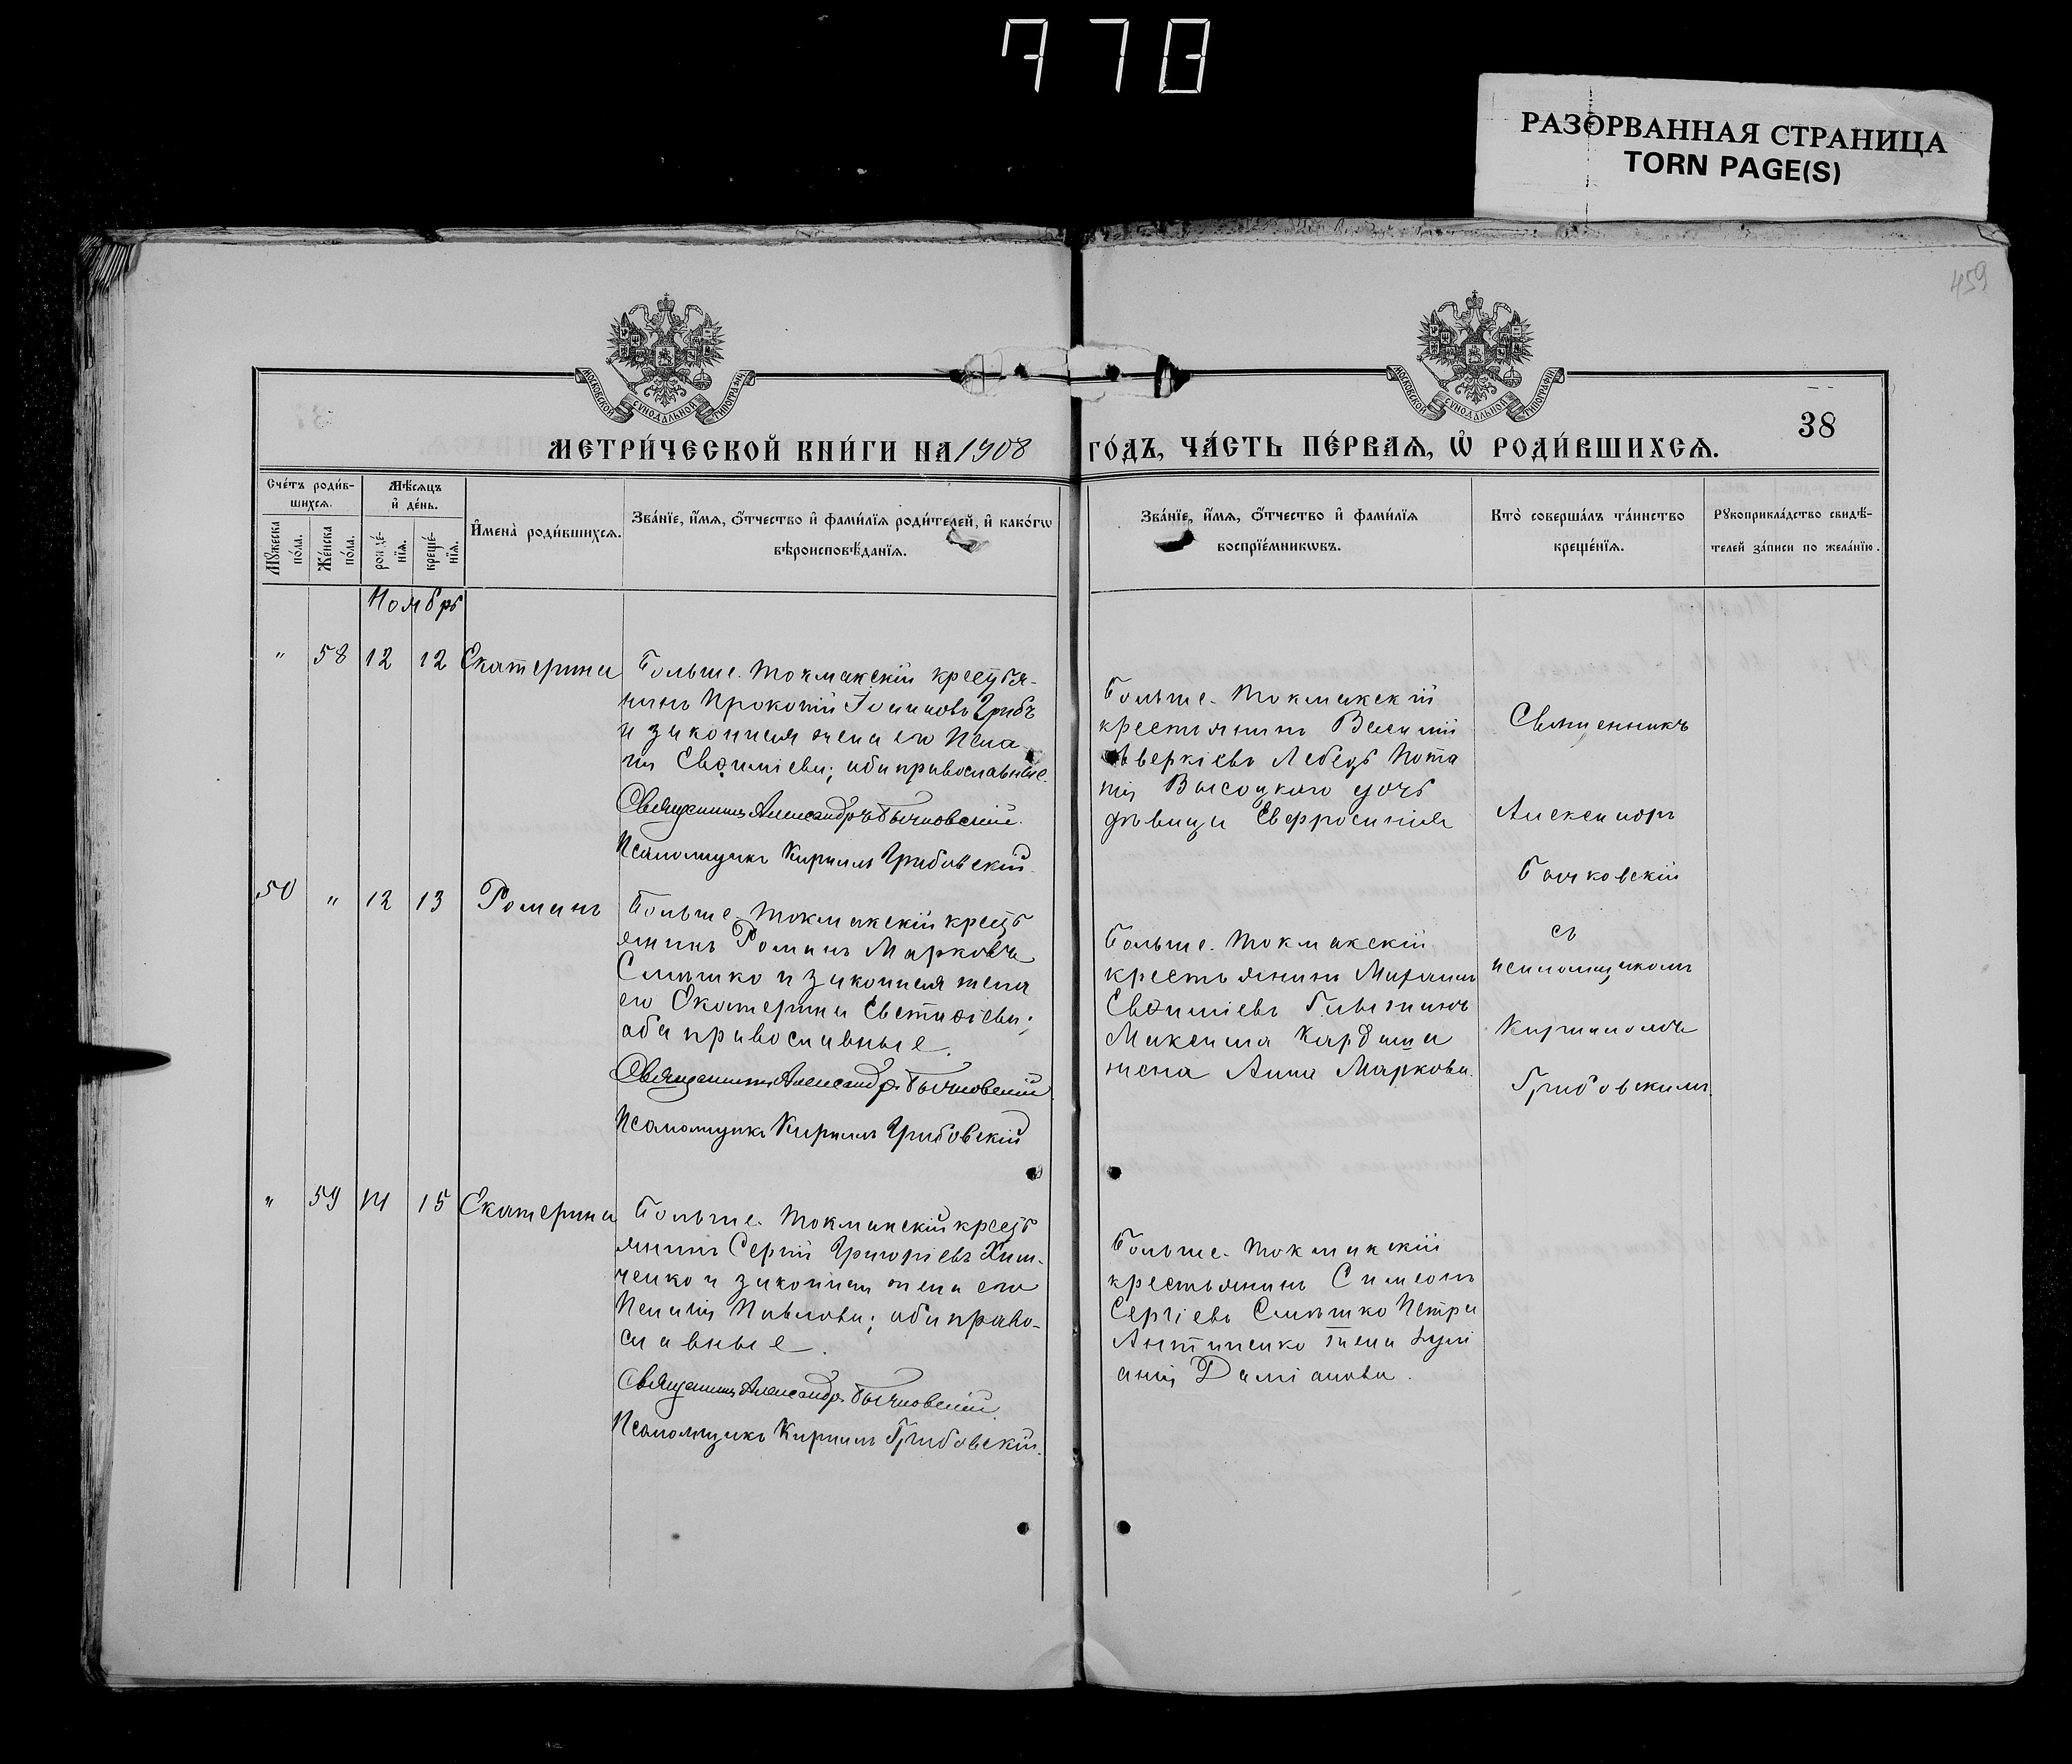 778
РАЗОРВАННАЯ СТРАНИЦА
TORN PAGE(S)
459
МОСКОВСКОЙ СѴНОДАЛЬНОЙ ТИПОГРАФІИ
МОСКОВСКОЙ СѴНОДАЛЬНОЙ ТИПОГРАФІИ
38
МЕТРИ́ЧЕСКОЙ КНИ́ГИ НА 1908 ГО́ДЪ, ЧА́СТЬ ПЕ́РВАѦ, Ѡ҆ РОДИ́ВШИХСѦ.
Сче́тъ роди́в-
шихсѧ.
Мѣ́сѧцъ
и҆ де́нь.
Мꙋ́жеска
по́ла.
Же́нска
по́ла.
рожде́-
нїѧ.
креще́-
нїѧ.
И҆мена̀ роди́вшихсѧ.
Зва́нїе, и҆́мѧ, ѻ҆́тчество и҆ фами́лїѧ роди́телей, и҆ како́гѡ
вѣроисповѣ́данїѧ.
Зва́нїе, и҆́мѧ, ѻ҆́тчество и҆ фами́лїѧ
воспрїе́мникѡвъ.
Кто̀ соверша́лъ та́инство
креще́нїѧ.
Рꙋкоприкла́дство свидѣ́-
телей за́писи по жела́нїю.
Ноябрь
" 58 12 12 Екатерина
Больше-Токмакскій крестья-
нинъ Прокопій Іоанновъ Грибъ
и законная жена его Пела-
гія Евѳиміева; оба православные.
Священникъ Александръ Бычковскій.
Псаломщикъ Кириллъ Грибовскій.
Больше-Токмакскій
крестьянинъ Василій
Аверкіевъ Лебедь Пота
пія Высоцкаго дочь
дѣвица Евфросинія
Священникъ
Александръ
Бычковскій
съ
псаломщикомъ
Кирилломъ
Грибовскимъ.
50 " 12 13 Романъ
Больше-Токмакскій кресть
янинъ Романъ Марковъ
Слышко и законная жена
его Екатерина Евстаѳіева;
оба православные.
Священникъ Александръ Бычковскій
Псаломщикъ Кириллъ Грибовскій
Больше-Токмакскій
крестьянинъ Михаилъ
Евѳиміевъ
Максима Кардаша
жена Анна Маркова.
" 59 14 15 Екатерина
Больше-Токмакскій кресть
янинъ Сергій Григоріевъ Хим-
ченко и законная жена его
Пелагія Павлова; оба право-
славные.
Священникъ Александръ Бычковскій.
Псаломщикъ Кириллъ Грибовскій.
Больше-Токмакскій
крестьянинъ Симеонъ
Сергіевъ Слышко Петра
Антипенко жена Іулі
анія Даміанова.